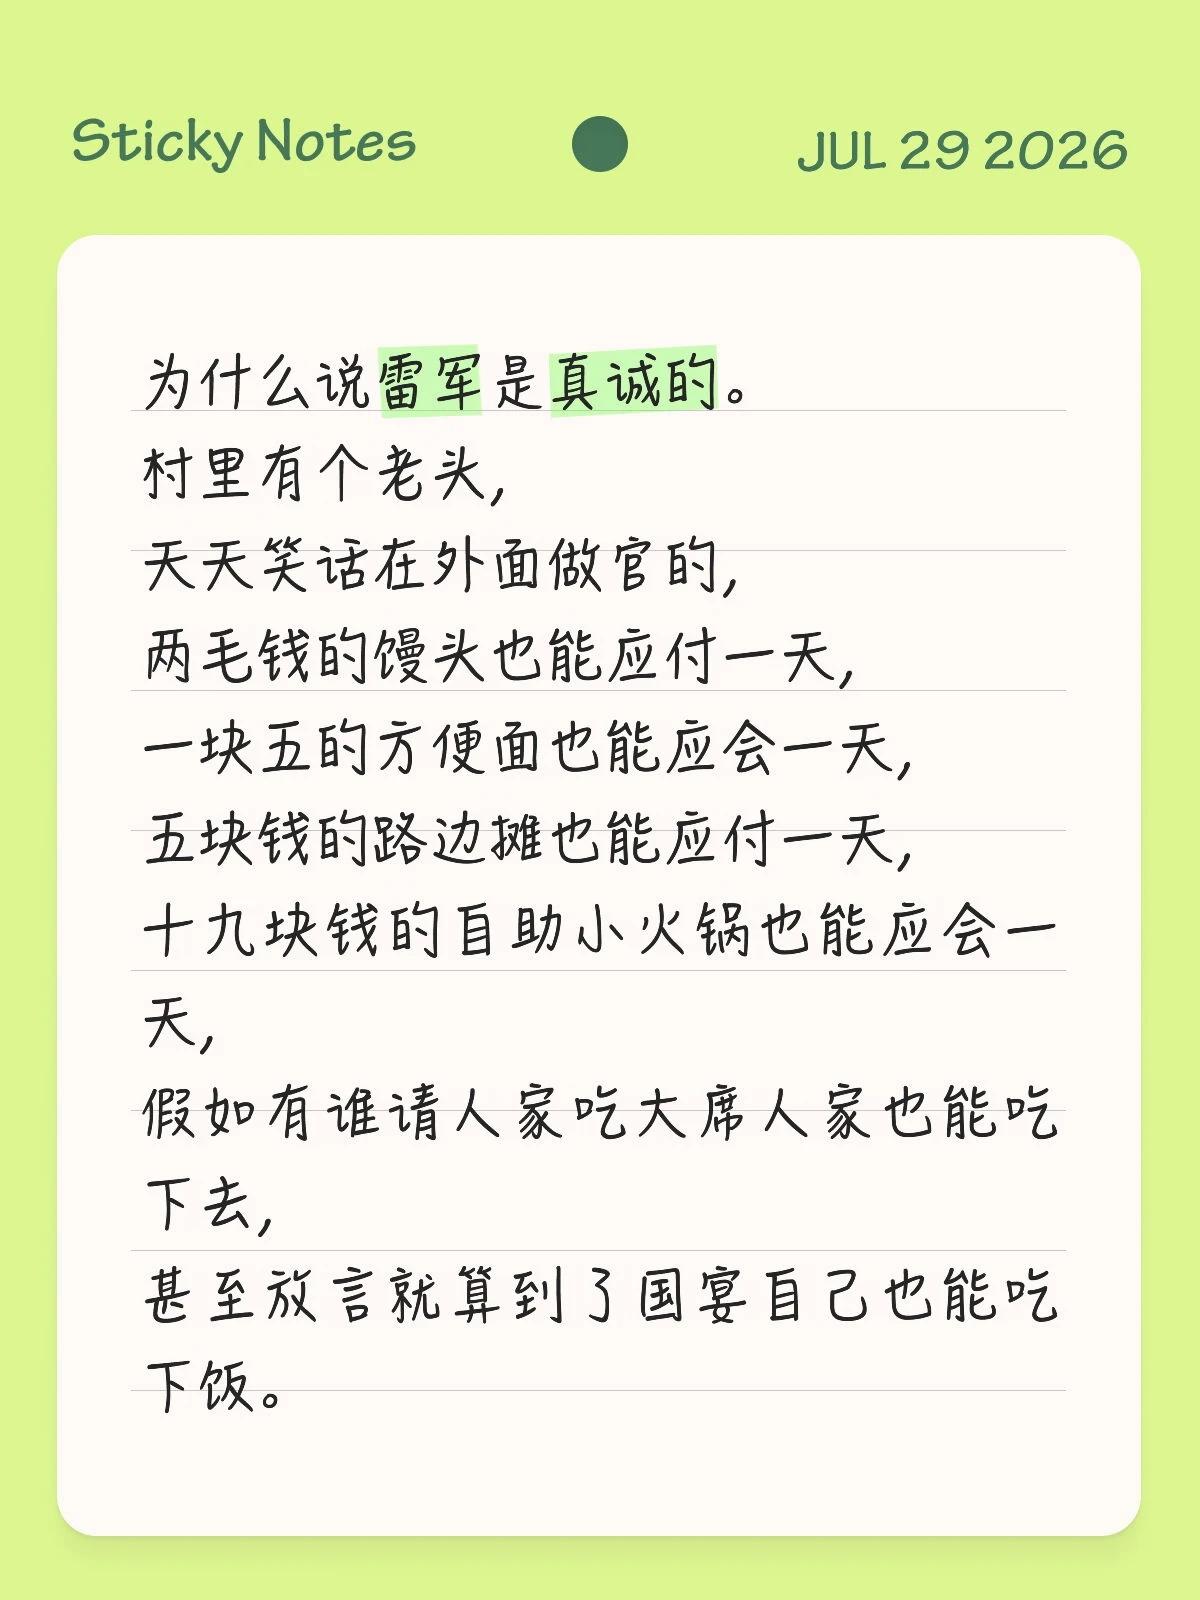 Sticky Notes
JUL 29 2026
为什么说雷军是真诚的。
村里有个老头，
天天笑话在外面做官的，
两毛钱的馒头也能应付一天，
一块五的方便面也能应会一天，
五块钱的路边摊也能应付一天，
十九块钱的自助小火锅也能应会一
天，
假如有谁请人家吃大席人家也能吃
下去，
甚至放言就算到了国宴自己也能吃
下饭。